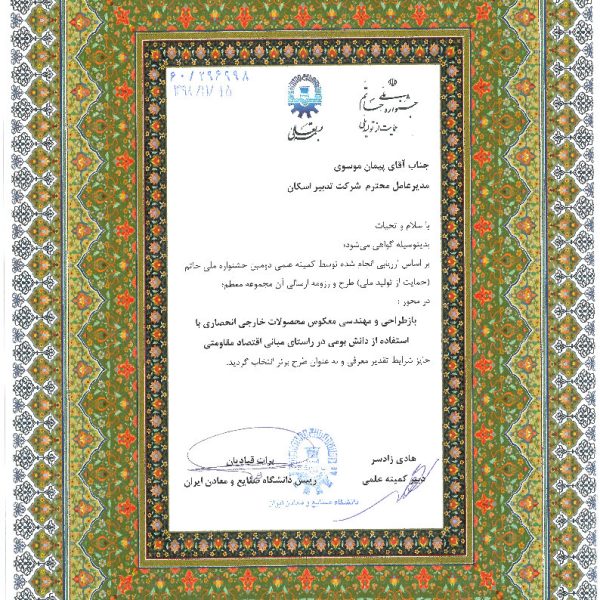 ۶۰/۲۹۶۲۹۸
جشنواره ملی حاتم
حمایت از تولید ملی
بسمه تعالی
جناب آقای پیمان موسوی
مدیرعامل محترم شرکت تدبیر اسکان
با سلام و تحیات
بدینوسیله گواهی می‌شود؛
بر اساس ارزیابی انجام شده توسط کمیته علمی دومین جشنواره ملی حاتم
(حمایت از تولید ملی) طرح و رزومه ارسالی آن مجموعه معظم؛
در محور :
بازطراحی و مهندسی معکوس محصولات خارجی انحصاری با
استفاده از دانش بومی در راستای مبانی اقتصاد مقاومتی
حایز شرایط تقدیر معرفی و به عنوان طرح برتر انتخاب گردید.
هادی زادسر
دبیر کمیته علمی
برات قنادیان
رییس دانشگاه صنایع و معادن ایران
دانشگاه صنایع و معادن ایران